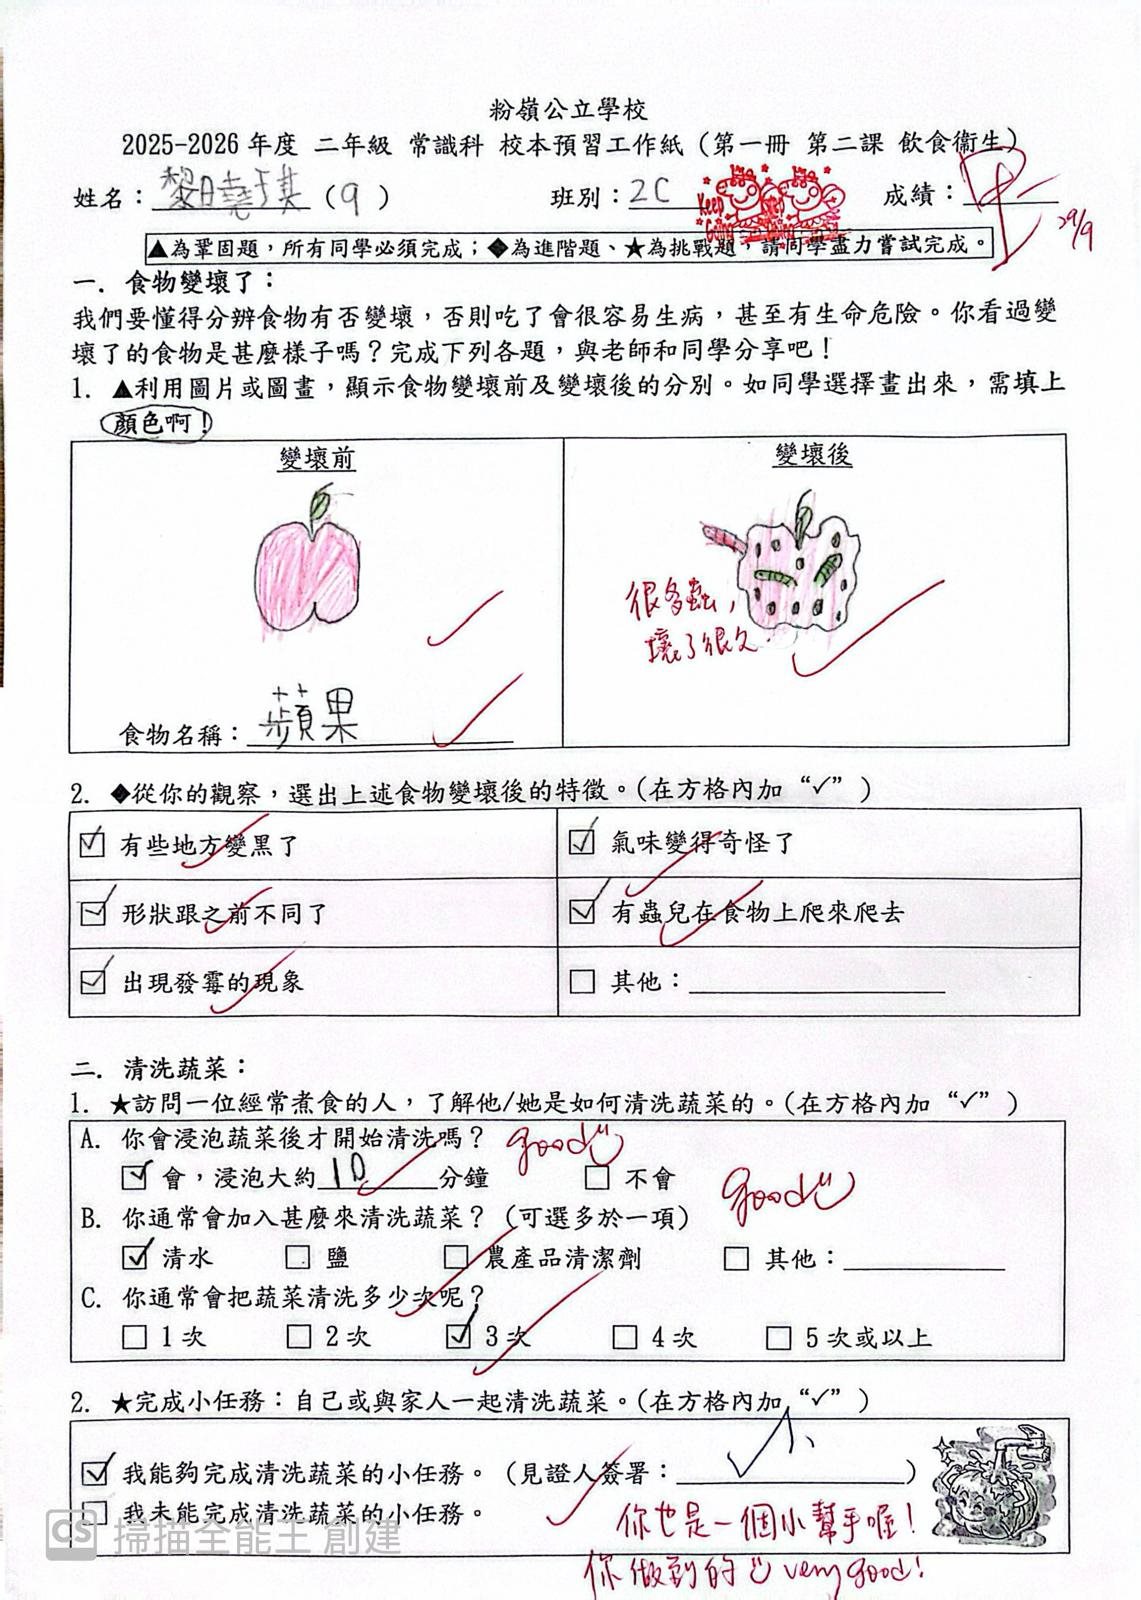 粉嶺公立學校
2025-2026 年度 二年級 常識科 校本預習工作紙（第一冊 第二課 飲食衞生）
姓名：黎曉琪（9） 班別：2C 成績：
Keep Going Keep Going
29/9
▲為鞏固題，所有同學必須完成；◆為進階題、★為挑戰題，請同學盡力嘗試完成。
一. 食物變壞了：
我們要懂得分辨食物有否變壞，否則吃了會很容易生病，甚至有生命危險。你看過變
壞了的食物是甚麼樣子嗎？完成下列各題，與老師和同學分享吧！
1. ▲利用圖片或圖畫，顯示食物變壞前及變壞後的分別。如同學選擇畫出來，需填上
顏色啊！
變壞前 變壞後
很多蟲，
壞了很久.
食物名稱：蘋果
2. ◆從你的觀察，選出上述食物變壞後的特徵。(在方格內加“✓”)
☑ 有些地方變黑了 ☑ 氣味變得奇怪了
☑ 形狀跟之前不同了 ☑ 有蟲兒在食物上爬來爬去
☑ 出現發霉的現象 □ 其他：
二. 清洗蔬菜：
1. ★訪問一位經常煮食的人，了解他/她是如何清洗蔬菜的。(在方格內加“✓”)
A. 你會浸泡蔬菜後才開始清洗嗎？ good
☑ 會，浸泡大約10分鐘 □ 不會
good
B. 你通常會加入甚麼來清洗蔬菜？（可選多於一項）
☑ 清水 □ 鹽 □ 農產品清潔劑 □ 其他：
C. 你通常會把蔬菜清洗多少次呢？
□ 1次 □ 2次 ☑ 3次 □ 4次 □ 5次或以上
2. ★完成小任務：自己或與家人一起清洗蔬菜。(在方格內加“✓”)
☑ 我能夠完成清洗蔬菜的小任務。（見證人簽署：）
□ 我未能完成清洗蔬菜的小任務。
你也是一個小幫手喔！
你做到的 very good!
CS 掃描全能王 創建